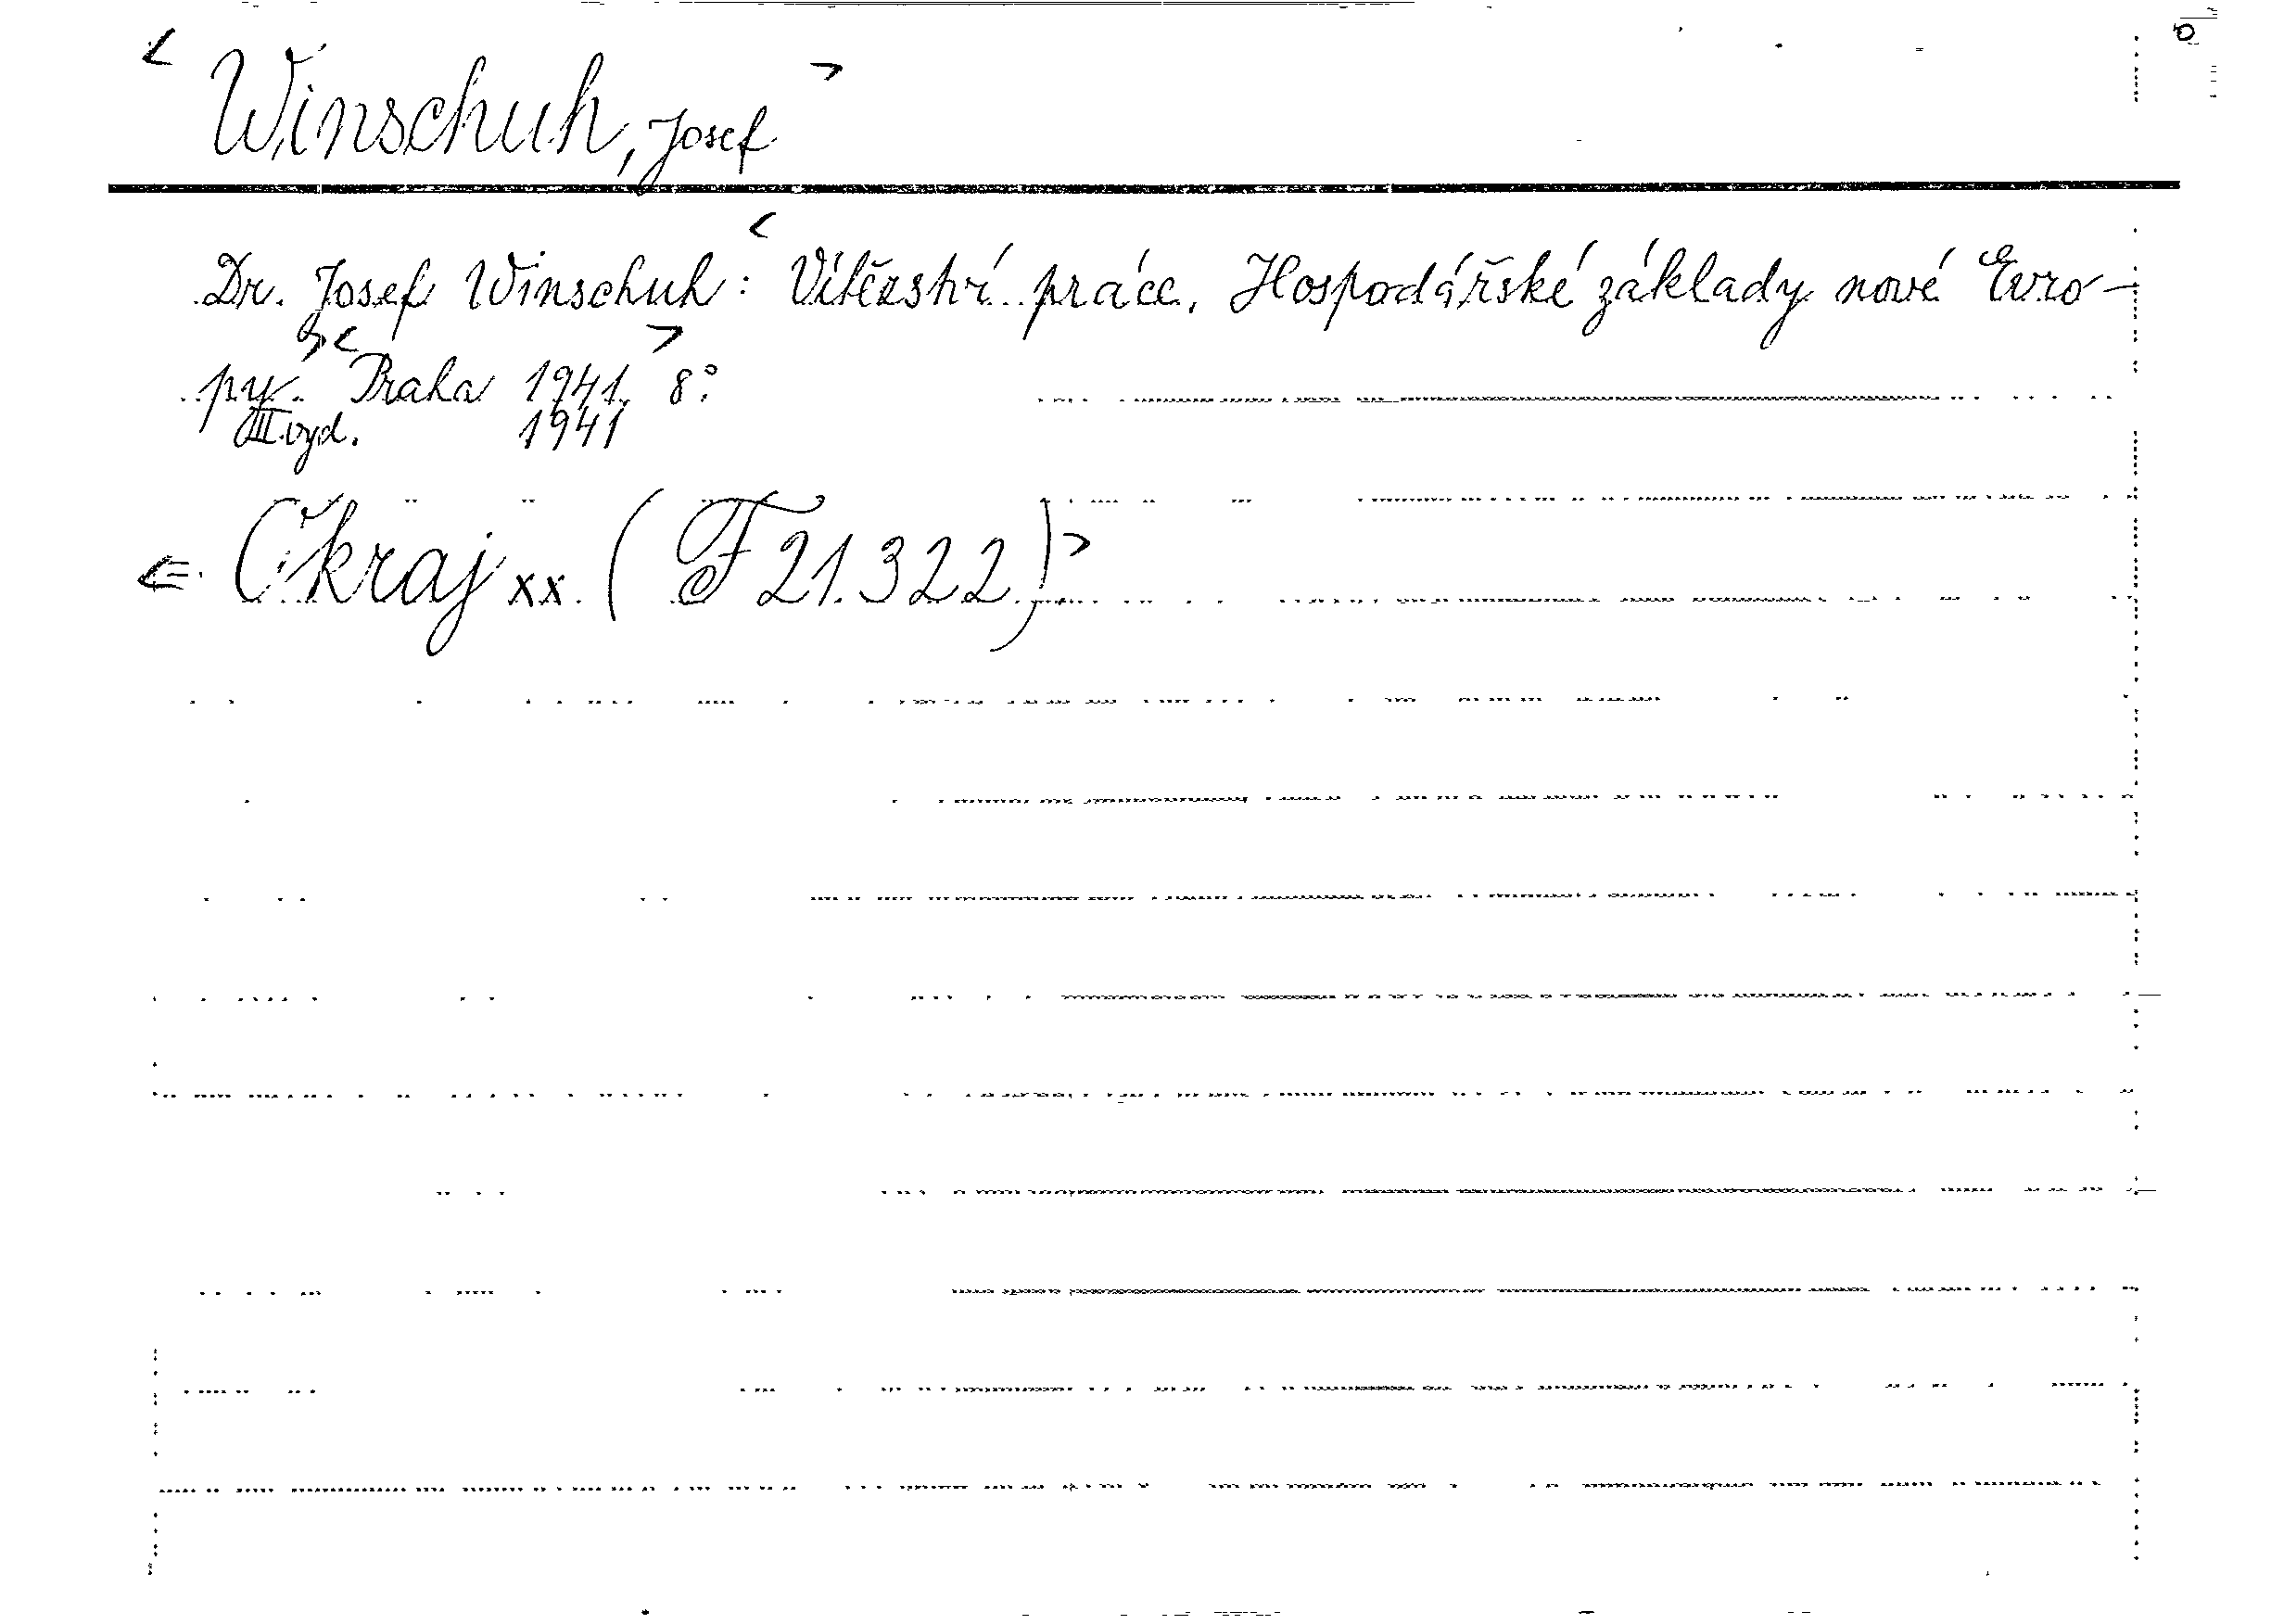 < Winschuh, Josef >
Dr. Josef Winschuh: < Vítězství práce. Hospodářské základy nové Evro-
py. > < Praha 1941. > 8°.
III. vyd. 1941
< Čkraj xx. (F 21.322) >